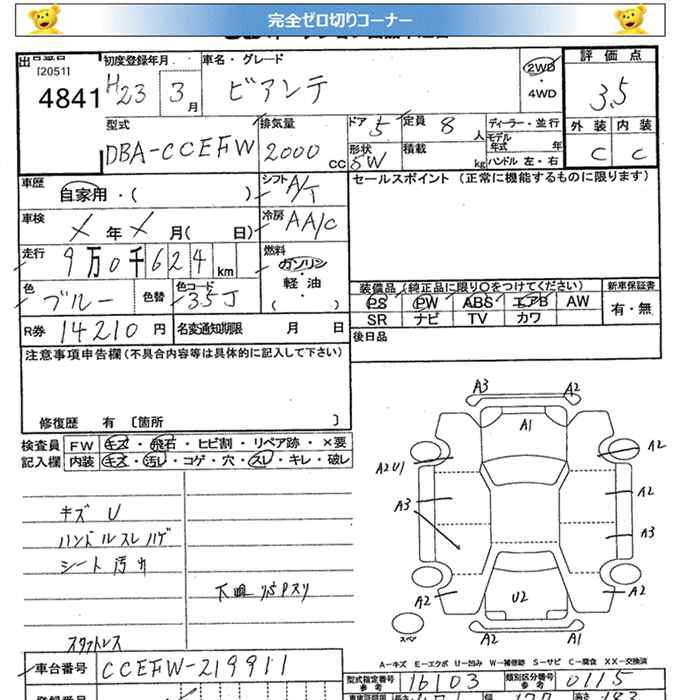 完全ゼロ切りコーナー
[2051]
4841
初度登録年月
H23 3月
車名・グレード
ビアンテ
2WD
・4WD
評価点
3.5
外装 内装
C C
型式
DBA-CCEFW
排気量
2000 CC
ドア 5
定員 8人
ディーラー・並行
モデル年式 年
形状 5W
積載 kg
ハンドル 左・右
車歴
自家用・( )
シフト A/T
セールスポイント (正常に機能するものに限ります)
車検
X年X月( 日)
冷房 AA/C
走行
9万0千624km
燃料
ガソリン・軽油
( )
色
ブルー
色替
色コード
35J
装備品 (純正品に限り○をつけてください)
新車保証書
PS PW ABS エアB AW
有・無
SR ナビ TV カワ
R券 14210円
名変通知期限 月 日
後日品
注意事項申告欄 (不具合内容等は具体的に記入して下さい)
修復歴 有 [箇所 ]
検査員 FW キズ・飛石・ヒビ割・リペア跡・×要
記入欄 内装 キズ・汚レ・コゲ・穴・スレ・キレ・破レ
キズ U
ハンドルスレハゲ
シート汚れ
スタットレス
A3 A2
A1
A2U1 A2
A2
A3 A3
U2
A2 A2
A2 A1
スペア
A-キズ E-エクボ U-凹み W-補修跡 S-サビ C-腐食 XX-交換済
車台番号 CCEFW-219911
型式指定番号 参考 16103
類別区分番号 参考 0115
登録番号